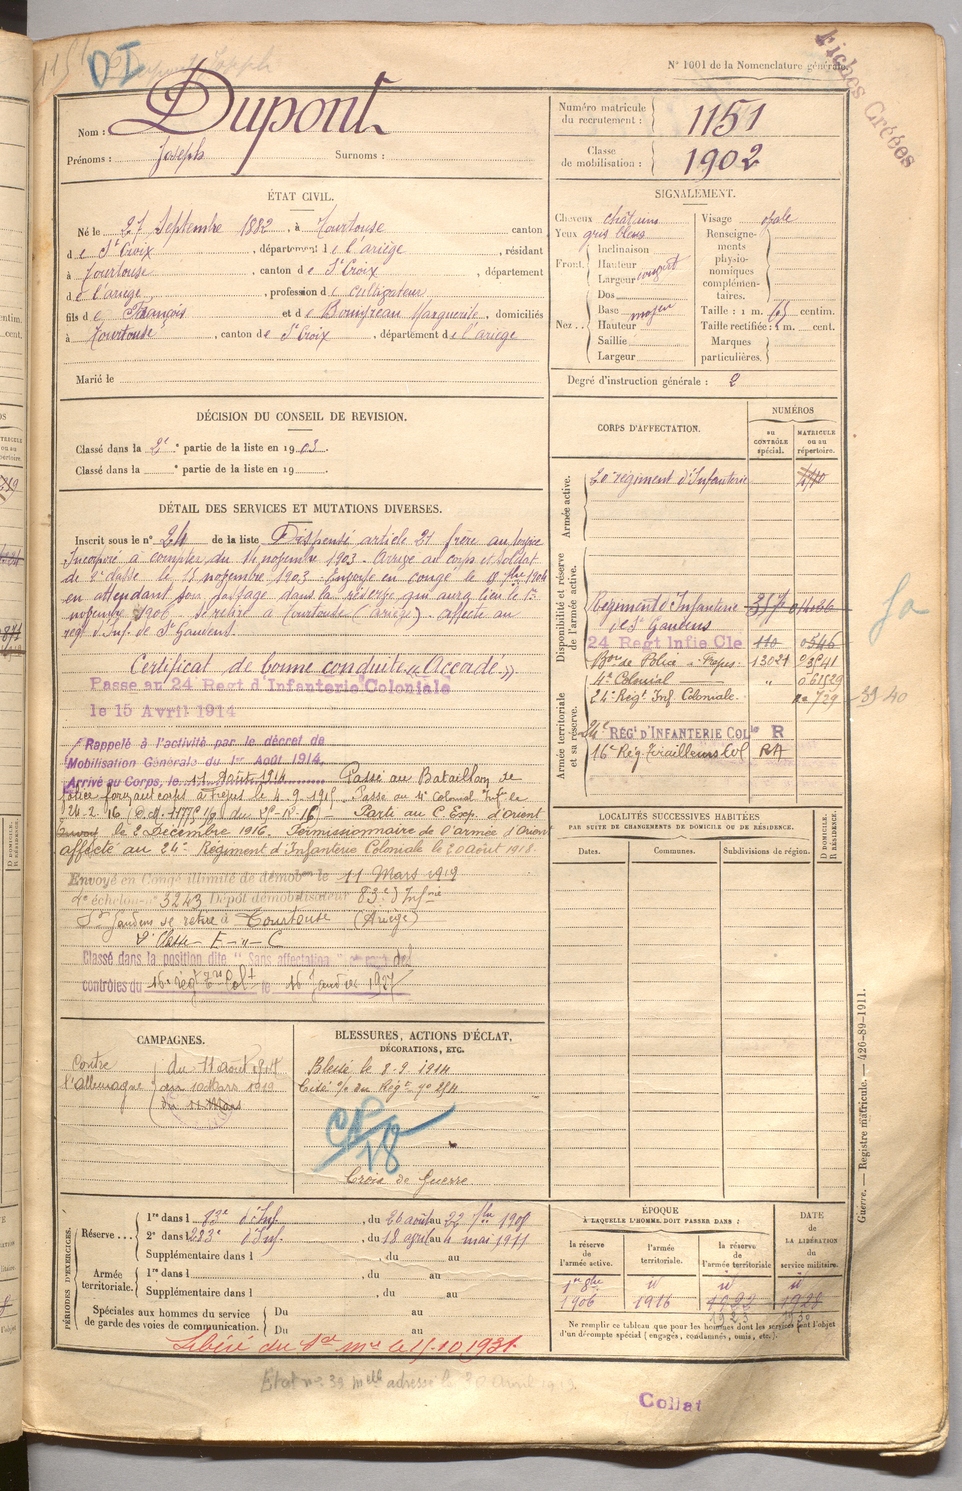 1151
DI
Dupont Joseph
N° 1001 de la Nomenclature générale.
Fiches Créées
Nom : Dupont
Prénoms : Joseph Surnoms :
Numéro matricule du recrutement : 1151
Classe de mobilisation : 1902
ÉTAT CIVIL.
Né le 27 Septembre 1882, à Tourtouse canton
de Ste Croix, département de l'ariège, résidant
à Tourtouse, canton de Ste Croix, département
de l'ariège, profession de cultivateur
fils de François et de Marguerite, domiciliés
à Tourtouse, canton de Ste Croix, département de l'ariège
Marié le
SIGNALEMENT.
Cheveux châtains
Yeux gris bleus
Front. Inclinaison
Hauteur
Largeur
Nez. Dos
Base moyen
Hauteur
Saillie
Largeur
Visage ovale
Renseignements physionomiques complémentaires.
Taille : 1 m. 65 centim.
Taille rectifiée : 1 m. cent.
Marques particulières.
Degré d'instruction générale : 2
DÉCISION DU CONSEIL DE REVISION.
Classé dans la 2e partie de la liste en 1903.
Classé dans la e partie de la liste en 19
DÉTAIL DES SERVICES ET MUTATIONS DIVERSES.
Inscrit sous le n° 24 de la liste Dispensé article 21 frère au service
Incorporé à compter du 14 novembre 1903. Arrivé au corps et soldat
de 2e classe le 15 novembre 1903. Envoyé en congé le 18 7bre 1904
en attendant son passage dans la réserve qui aura lieu le 1er
novembre 1906. Se retire à Tourtouse (Ariège). affecté au
rég. d'Inf. de St Gaudens.
Certificat de bonne conduite « Accordé »
Passé au 24 Regt d'Infanterie Coloniale
le 15 Avril 1914
Rappelé à l'activité par le décret de
Mobilisation Générale du 1er Août 1914.
Arrivé au Corps, le 11 Août 1914 Passé au Bataillon de
police à Fréjus le 4.9.1915. Passé au 4e Colonial Inf. le
24.2.16 Parti au C. Exp. d'Orient
le 2 Décembre 1916. Permissionnaire de l'armée d'Orient
affecté au 24e Régiment d'Infanterie Coloniale le 20 août 1918.
Envoyé en Congé illimité de démobon le 11 Mars 1919
4e échelon n° 3243 Dépôt démobilisateur 83e d'Infrie
St Gaudens se retire à Tourtouse (Ariège)
Classé dans la position dite "Sans affectation"
contrôles du 16e rég Col le 16 Janvier 1927
CORPS D'AFFECTATION.
NUMÉROS
au CONTRÔLE spécial.
MATRICULE ou au répertoire.
Armée active.
20e régiment d'Infanterie 4110
Disponibilité et réserve de l'armée active.
Régiment d'Infanterie
de St Gaudens
24 Regt Infie Cle 110 0546
Bon de Police à Fréjus. 13021
4e Colonial " 
24e Rég. Inf. Coloniale. 729
39 40
Armée territoriale et sa réserve.
24e RÉGt D'INFANTERIE COLle R
16e Rég. Tirailleurs Col RA
LOCALITÉS SUCCESSIVES HABITÉES
PAR SUITE DE CHANGEMENTS DE DOMICILE OU DE RÉSIDENCE.
Dates.
Communes.
Subdivisions de région.
D DOMICILE.
R RÉSIDENCE.
CAMPAGNES.
Contre l'allemagne
du 11 août 1914
au 10 Mars 1919
du 11 Mars
BLESSURES, ACTIONS D'ÉCLAT,
DÉCORATIONS, ETC.
Blessé le 8.9.1914
Croix de Guerre
PÉRIODES D'EXERCICES.
Réserve 1re dans l 83e d'Inf., du 26 août au 22 7bre 1908
2e dans l 283e d'Inf., du 18 avril au 4 mai 1911
Supplémentaire dans l , du au
Armée territoriale. 1re dans l , du au
Supplémentaire dans l , du au
Spéciales aux hommes du service
de garde des voies de communication. Du au
Du au
Libéré du
ÉPOQUE
À LAQUELLE L'HOMME DOIT PASSER DANS :
la réserve de l'armée active.
l'armée territoriale.
la réserve de l'armée territoriale
DATE DE LA LIBÉRATION du service militaire.
1906 1916 1922 1928
1923
Ne remplir ce tableau que pour les hommes dont les services font l'objet
d'un décompte spécial (engagés, condamnés, omis, etc.).
Guerre. — Registre matricule. — 426-89-1911.
État n° 39 melle adressé le 30 avril 1913
Collat